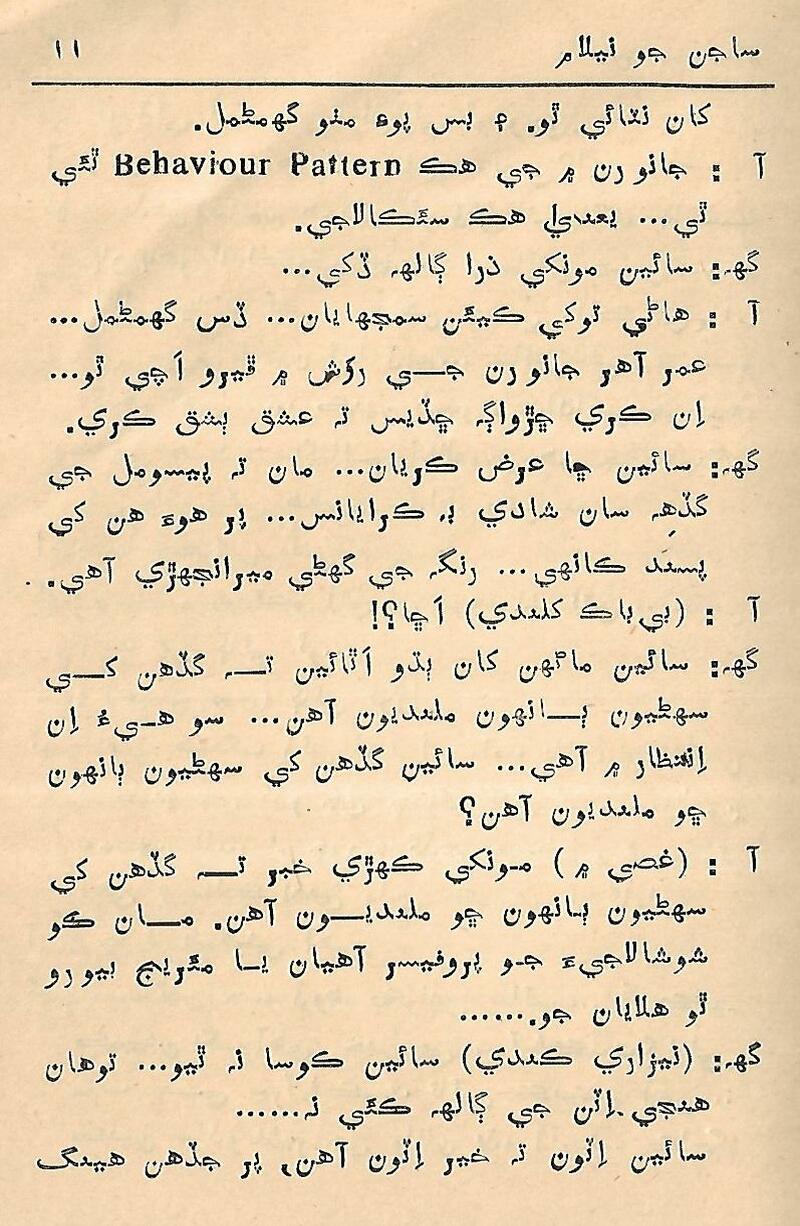 ساجن جو نيلام ١١
کان نٽائي ٿو. ۽ بس پوءِ مئو گهمڻمل.
آ : جانورن ۾ جي هڪ Behaviour Pattern ٿئي
ٿي... يعني هڪ سئڪالاجي.
گهہ: سائين مونکي ذرا ڳالهہ ڏکي...
آ : هاڻي توکي ڪيئن سمجهايان... ڏس گهمڻمل...
عمر آهر جانورن جي روَش ۾ ڦيرو اَچي ٿو...
اِن ڪري ڇڙواڳہ ڇڏيس تہ عشق بشق ڪري.
گهہ: سائين ڇا عرض ڪريان... مان تہ پيسومل جي
گڏهہ سان شادي بہ ڪرايانس... پر هوءَ هن کي
پسند ڪانهي... رنگہ جي گهڻي ميرانجهڙي آهي.
آ : (بي باڪ کلندي) اَڇا؟!
گهہ: سائين ماڻهن کان ٻڌو اَٿائين تہ گڏهن کي
سهڻيون ٻانهون ملنديون آهن... سو هيءُ اِن
اِنتظار ۾ آهي... سائين گڏهن کي سهڻيون ٻانهون
ڇو ملنديون آهن؟
آ : (غصي ۾) مونکي ڪهڙي خبر تہ گڏهن کي
سهڻيون ٻانهون ڇو ملنديون آهن. مان ڪو
شوشالاجيءَ جو پروفيسر آهيان يا مئريج بيورو
ٿو هلايان جو.......
گهہ: (نيزاري ڪندي) سائين ڪوسا نہ ٿيو... توهان
هنجي اِٽن جي ڳالهہ ڪئي نہ......
سائين اِٽون تہ خير اِٽون آهن، پر جڏهن هينگ